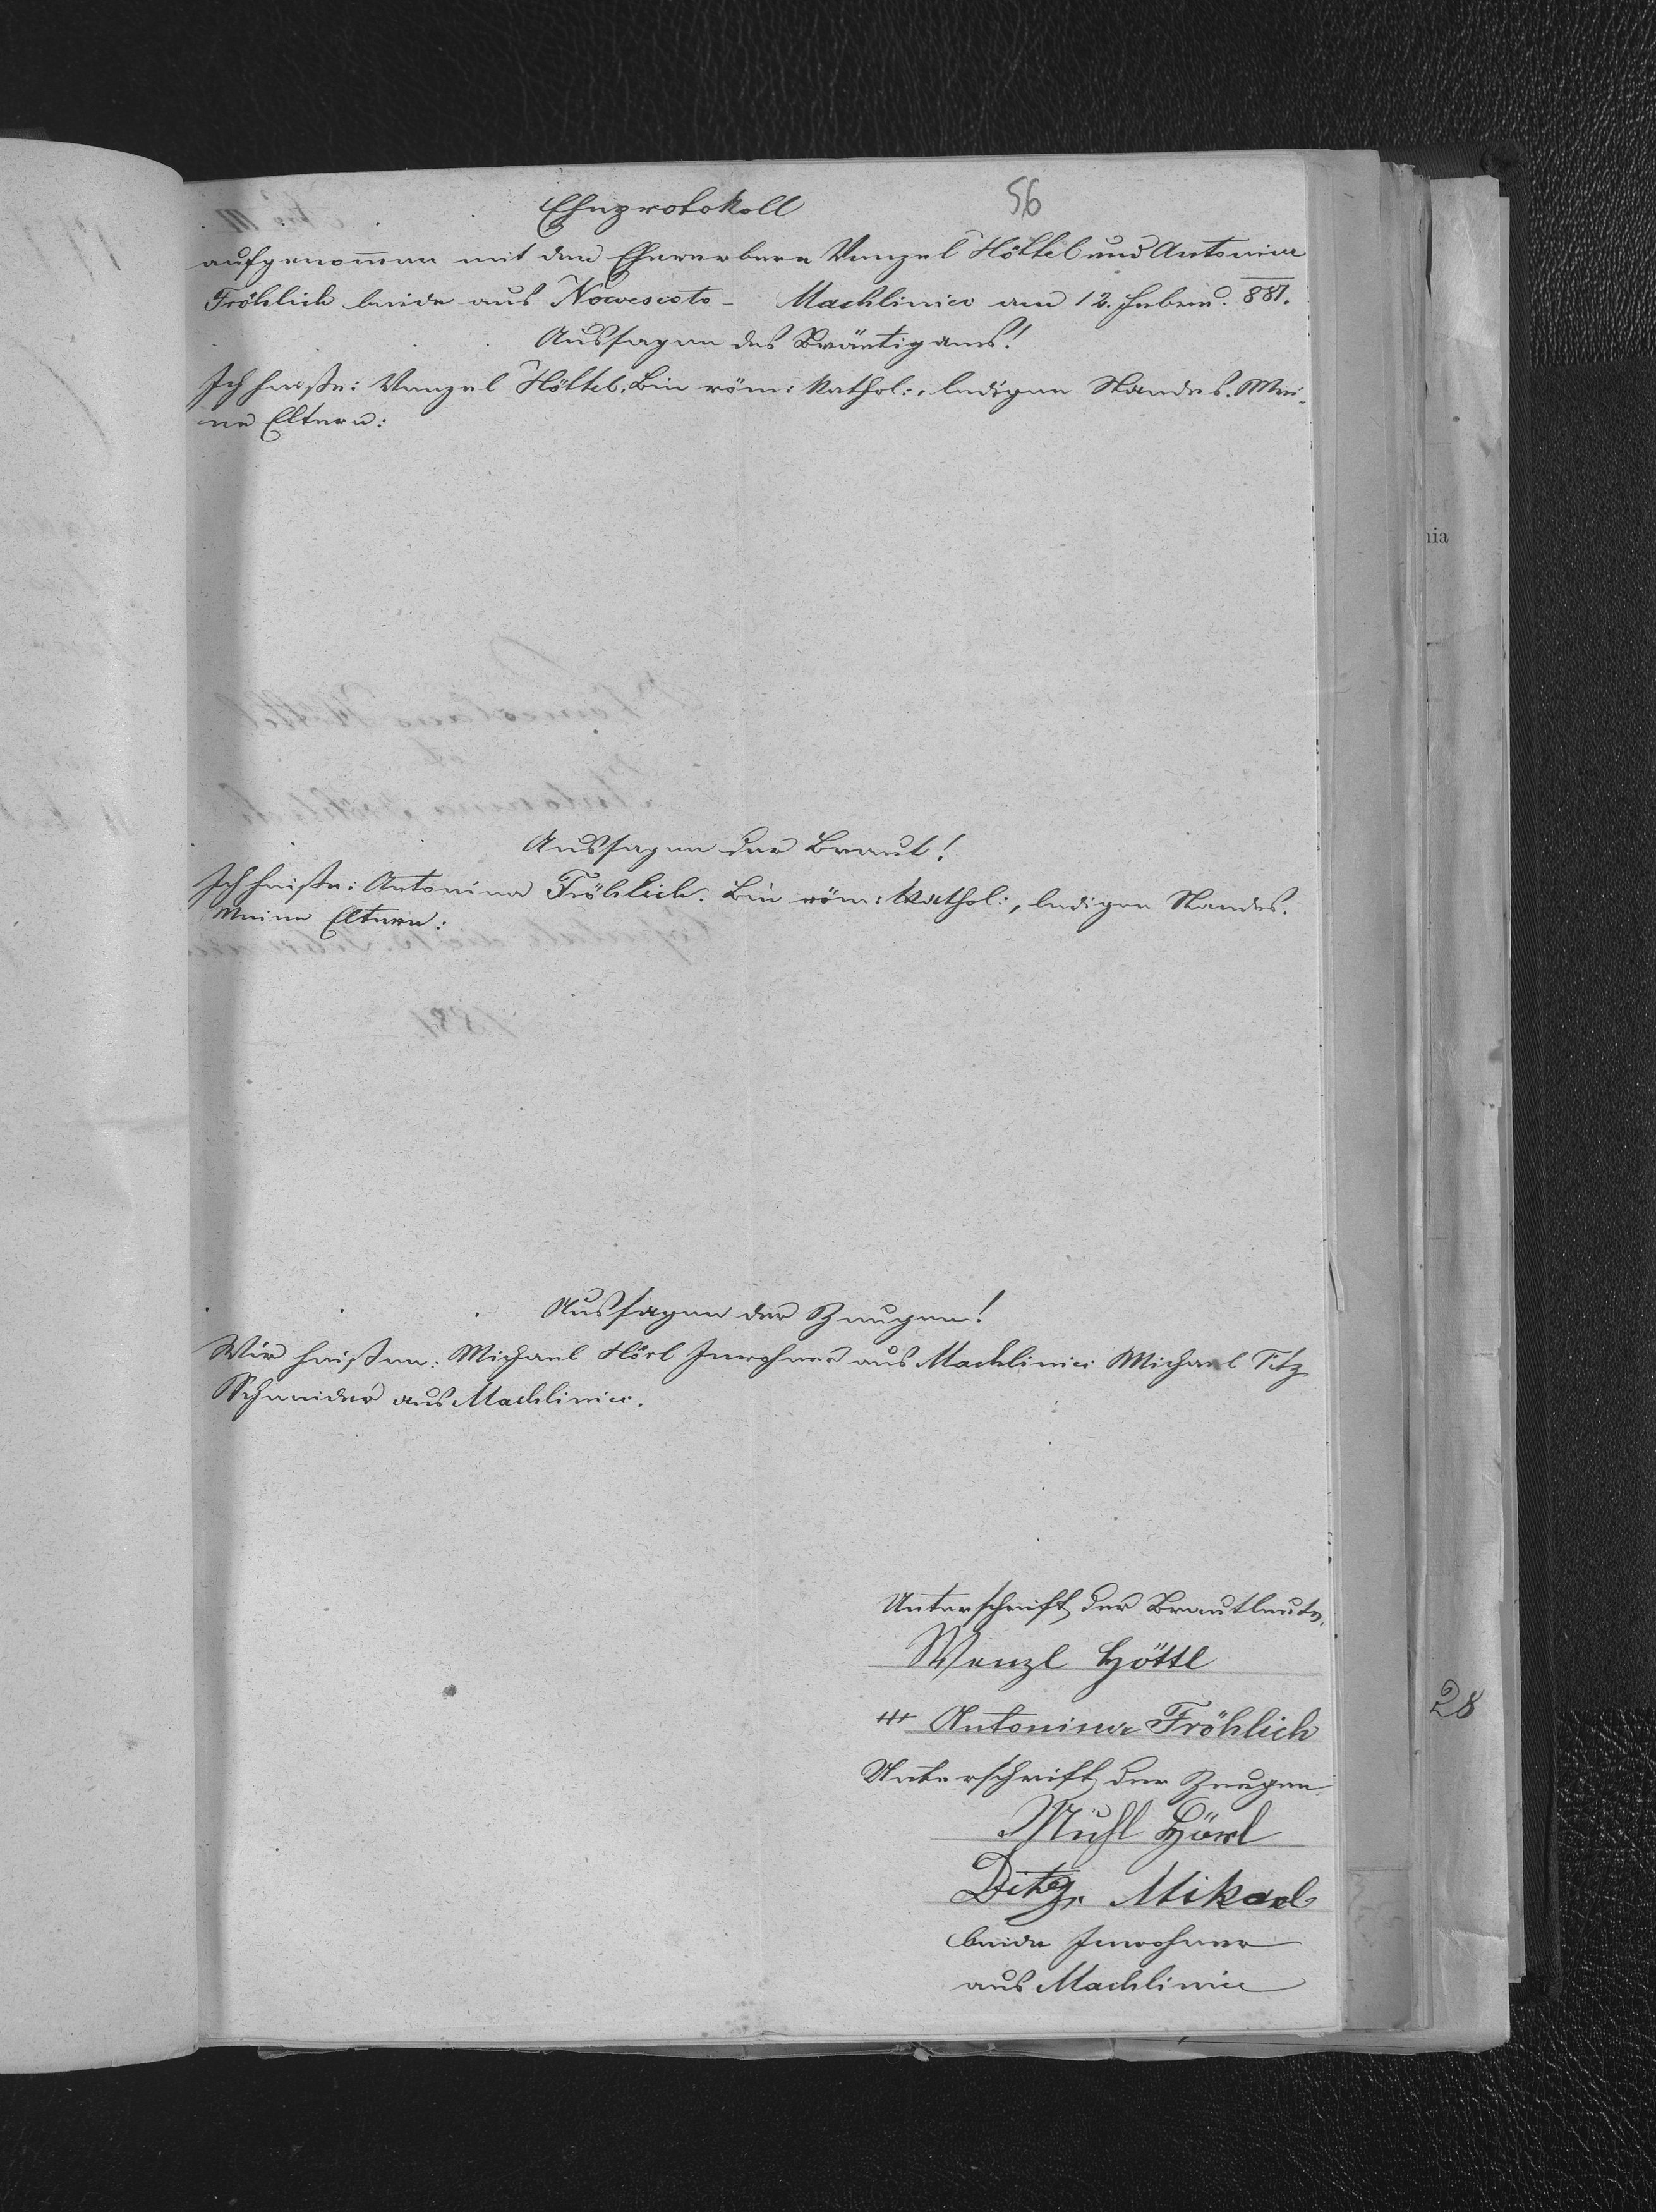 Eheprotokoll
56
aufgenommen mit den Ehewerbern Venzel Höttel und Antonina
Fröhlich beide aus Nowesioto - Machlinici am 12. Febru. 881.
Aussagen des Bräutigams!
Ich heiße: Venzel Höttel. Bin röm: kathol:, ledigen Standes. Mei-
ne Eltern:
Aussagen der Braut!
Ich heiße: Antonina Fröhlich. Bin röm: Kathol:, ledigen Standes.
Meine Eltern:
Aussagen der Zeugen!
Wir heißen: Michael Hörl Inwohner aus Machlinici Michael Titz
Schneider aus Machlinici.
Unterschrift der Brautleute.
Wenzl Höttl
+++ Antonina Fröhlich
Unterschrift der Zeugen
Hörl
Ditz. Mikael
beide Inwohner
aus Machlinice
28
nia